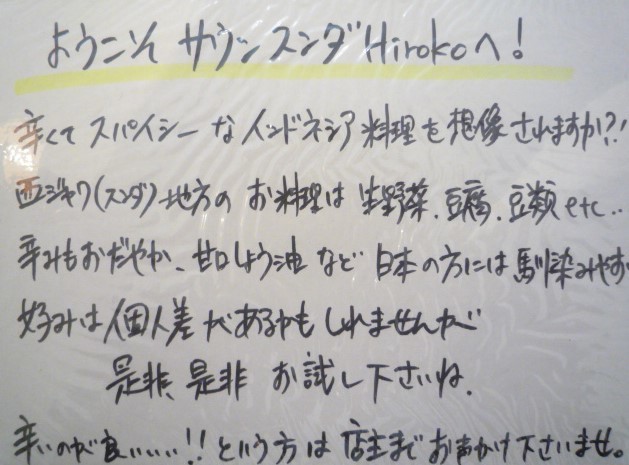 ようこそ サウンスンダHirokoへ!
辛くて スパイシーな インドネシア 料理を 想像 されますか?!
西ジャワ(スンダ)地方の お料理は 生野菜、豆腐、豆類 etc..
辛みもおだやか、甘口しょう油 など 日本の方には 馴染みやす
好みは 個人差 があるかも しれませんが
是非、是非 お試し下さいね.
辛いのが良いいいい!! という方は 店主まで お声かけ下さいませ。